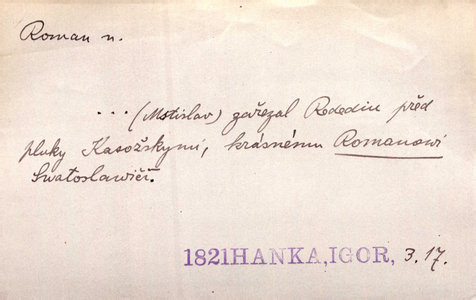 Roman n.
... (Mstislav) zařezal Redediu před
pluky Kasožskymi, krásnému Romanowi
Swatoslawiči.
1821HANKA,IGOR, 3.17.